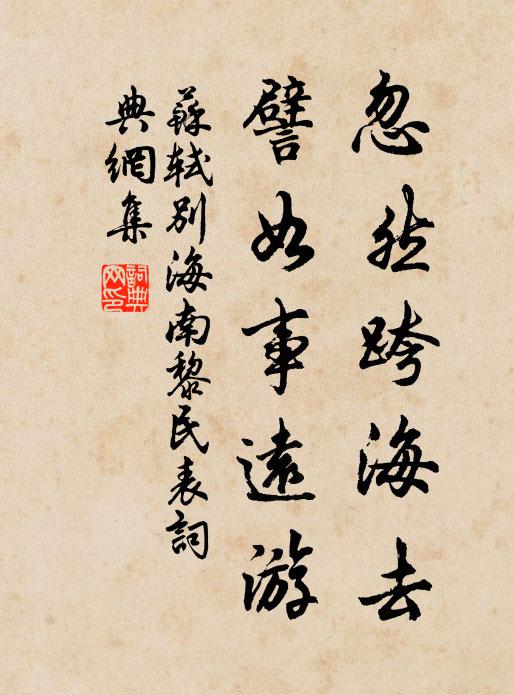 忽然跨海去
譬如事遠游
蘇軾别海南黎民表詞
典網集
詞典
网印